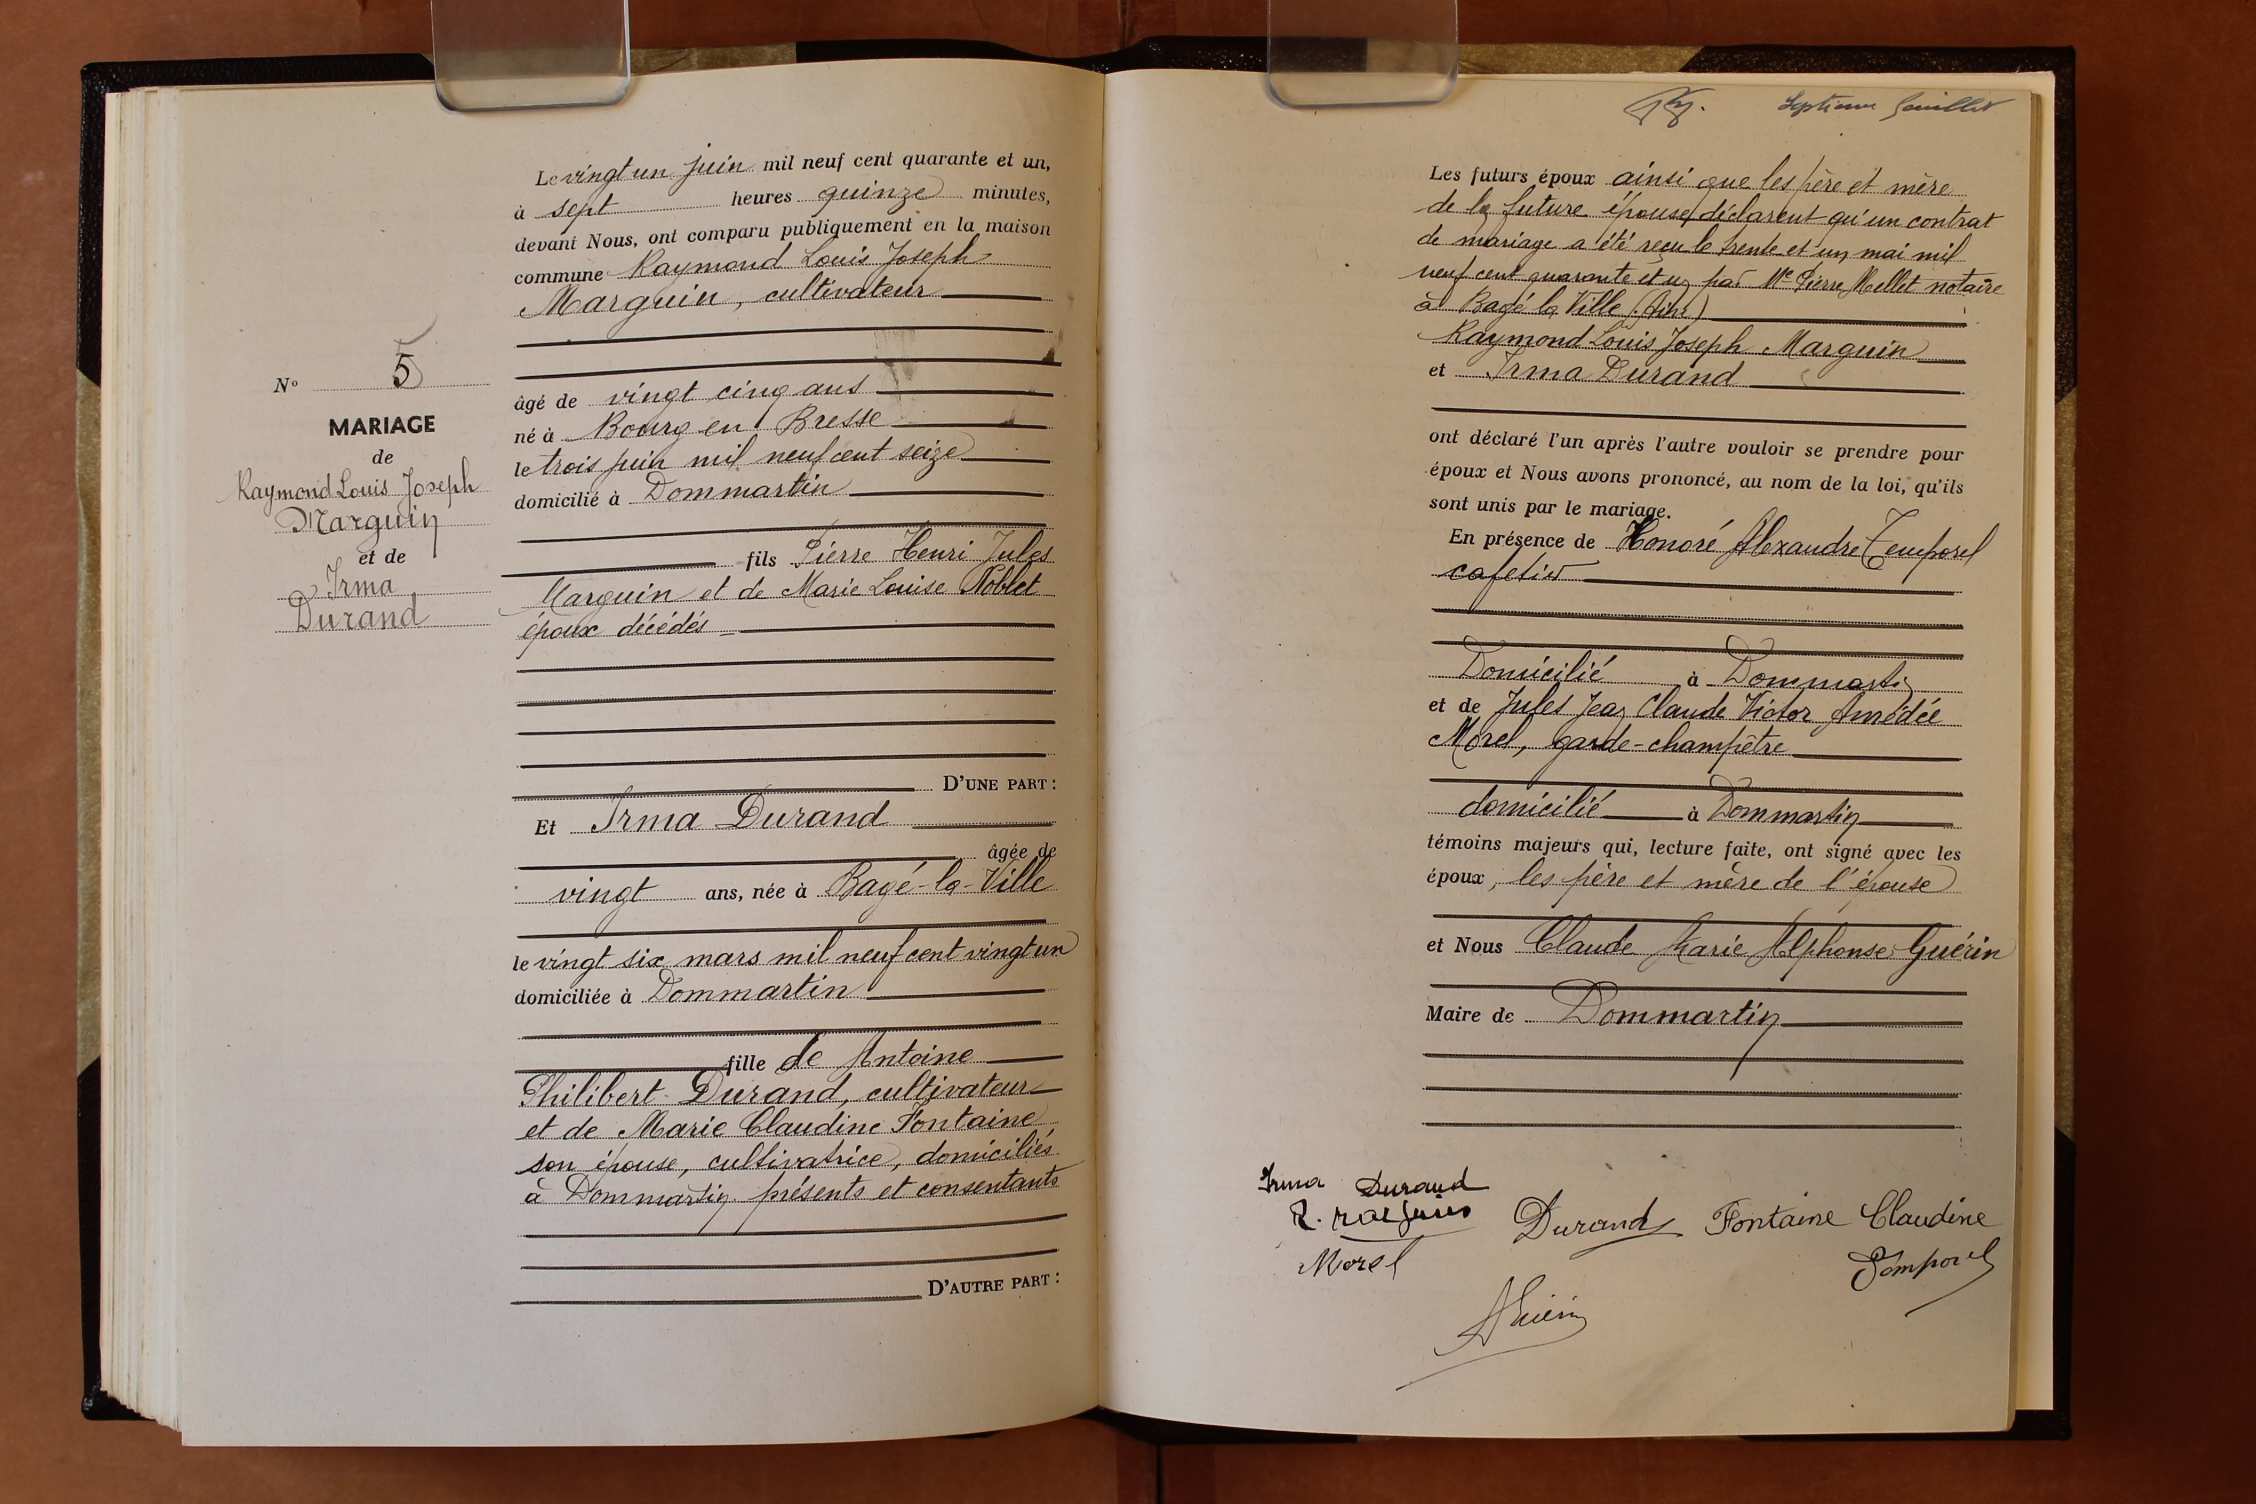 Le vingt un juin mil neuf cent quarante et un,
à sept heures quinze minutes,
devant Nous, ont comparu publiquement en la maison
commune Raymond Louis Joseph
Marguin, cultivateur
âgé de vingt cinq ans
né à Bourg en Bresse
le trois juin mil neuf cent seize
domicilié à Dommartin
fils Pierre Henri Jules
Marguin et de Marie Louise Noblet
époux décédés
D'UNE PART :
Et Irma Durand
âgée de
vingt ans, née à Bagé-la-Ville
le vingt six mars mil neuf cent vingt un
domiciliée à Dommartin
fille de Antoine
Philibert Durand, cultivateur
et de Marie Claudine Fontaine
son épouse, cultivatrice, domiciliés
à Dommartin présents et consentants
D'AUTRE PART :
N° 5
MARIAGE
de
Raymond Louis Joseph
Marguin
et de
Irma
Durand
Septième feuillet
Les futurs époux ainsi que les père et mère
de la future épouse déclarent qu'un contrat
de mariage a été reçu le trente et un mai mil
neuf cent quarante et un par Me Pierre Mellet notaire
à Bagé la Ville (Ain)
Raymond Louis Joseph Marguin
et Irma Durand
ont déclaré l'un après l'autre vouloir se prendre pour
époux et Nous avons prononcé, au nom de la loi, qu'ils
sont unis par le mariage.
En présence de Honoré Alexandre Temporel
cafetier
Domicilié à Dommartin
et de Jules Jean Claude Victor Amédée
Morel, garde-champêtre
domicilié à Dommartin
témoins majeurs qui, lecture faite, ont signé avec les
époux, les père et mère de l'épouse
et Nous Claude Marie Alphonse Guérin
Maire de Dommartin
Irma Durand
R. Marguin
Durand Fontaine Claudine
Morel Temporel
AGuérin